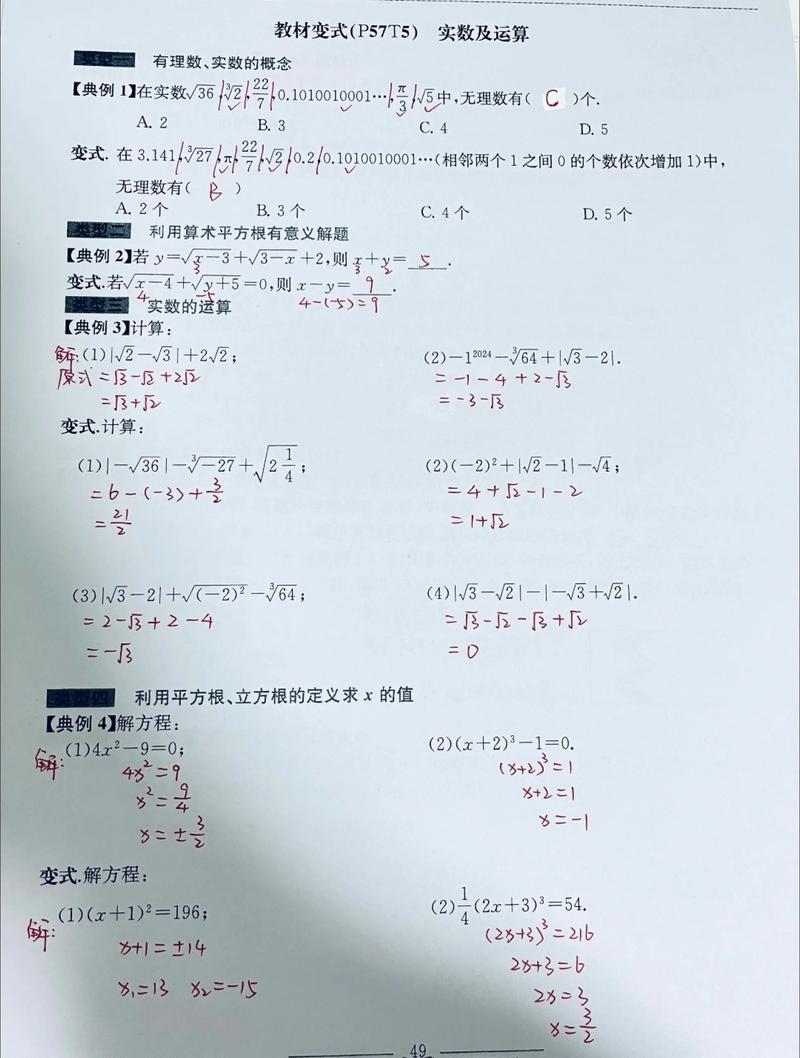 教材变式(P57T5) 实数及运算
类型一 有理数、实数的概念
【典例1】在实数√36,∛2,22/7,0.1010010001…,π/3,√5中,无理数有( C )个.
A. 2 B. 3 C. 4 D. 5
变式. 在 3.141,∛27,π,22/7,√2,0.2,0.1010010001…(相邻两个1之间0的个数依次增加1)中,
无理数有( B )
A. 2个 B. 3个 C. 4个 D. 5个
类型二 利用算术平方根有意义解题
【典例2】若 y=√(x-3)+√(3-x)+2,则 x+y= 5 .
3 3 2
变式.若√(x-4)+√(y+5)=0,则 x-y= 9 .
4 -5 4-(-5)=9
类型三 实数的运算
【典例3】计算:
解:(1)|√2-√3|+2√2; (2)-1²⁰²⁴-∛64+|√3-2|.
原式=√3-√2+2√2 =-1-4+2-√3
=√3+√2 =-3-√3
变式.计算:
(1)|-√36|-∛-27+√(2 1/4); (2)(-2)²+|√2-1|-√4;
=6-(-3)+3/2 =4+√2-1-2
=21/2 =1+√2
(3)|√3-2|+√(-2)²-∛64; (4)|√3-√2|-|-√3+√2|.
=2-√3+2-4 =√3-√2-√3+√2
=-√3 =0
类型四 利用平方根、立方根的定义求 x 的值
【典例4】解方程:
解:(1)4x²-9=0; (2)(x+2)³-1=0.
4x²=9 (x+2)³=1
x²=9/4 x+2=1
x=±3/2 x=-1
变式.解方程:
解:(1)(x+1)²=196; (2)1/4(2x+3)³=54.
x+1=±14 (2x+3)³=216
x₁=13 x₂=-15 2x+3=6
2x=3
x=3/2
49